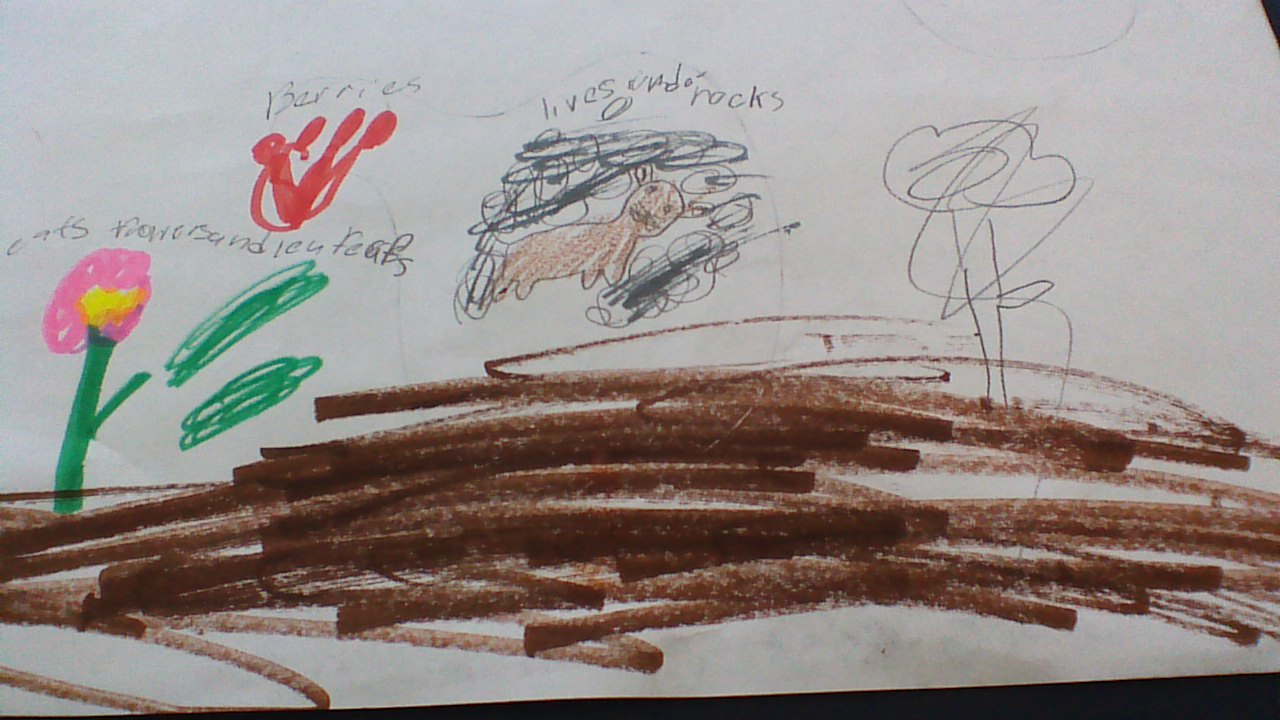 Berries
lives under rocks
eats flowers and